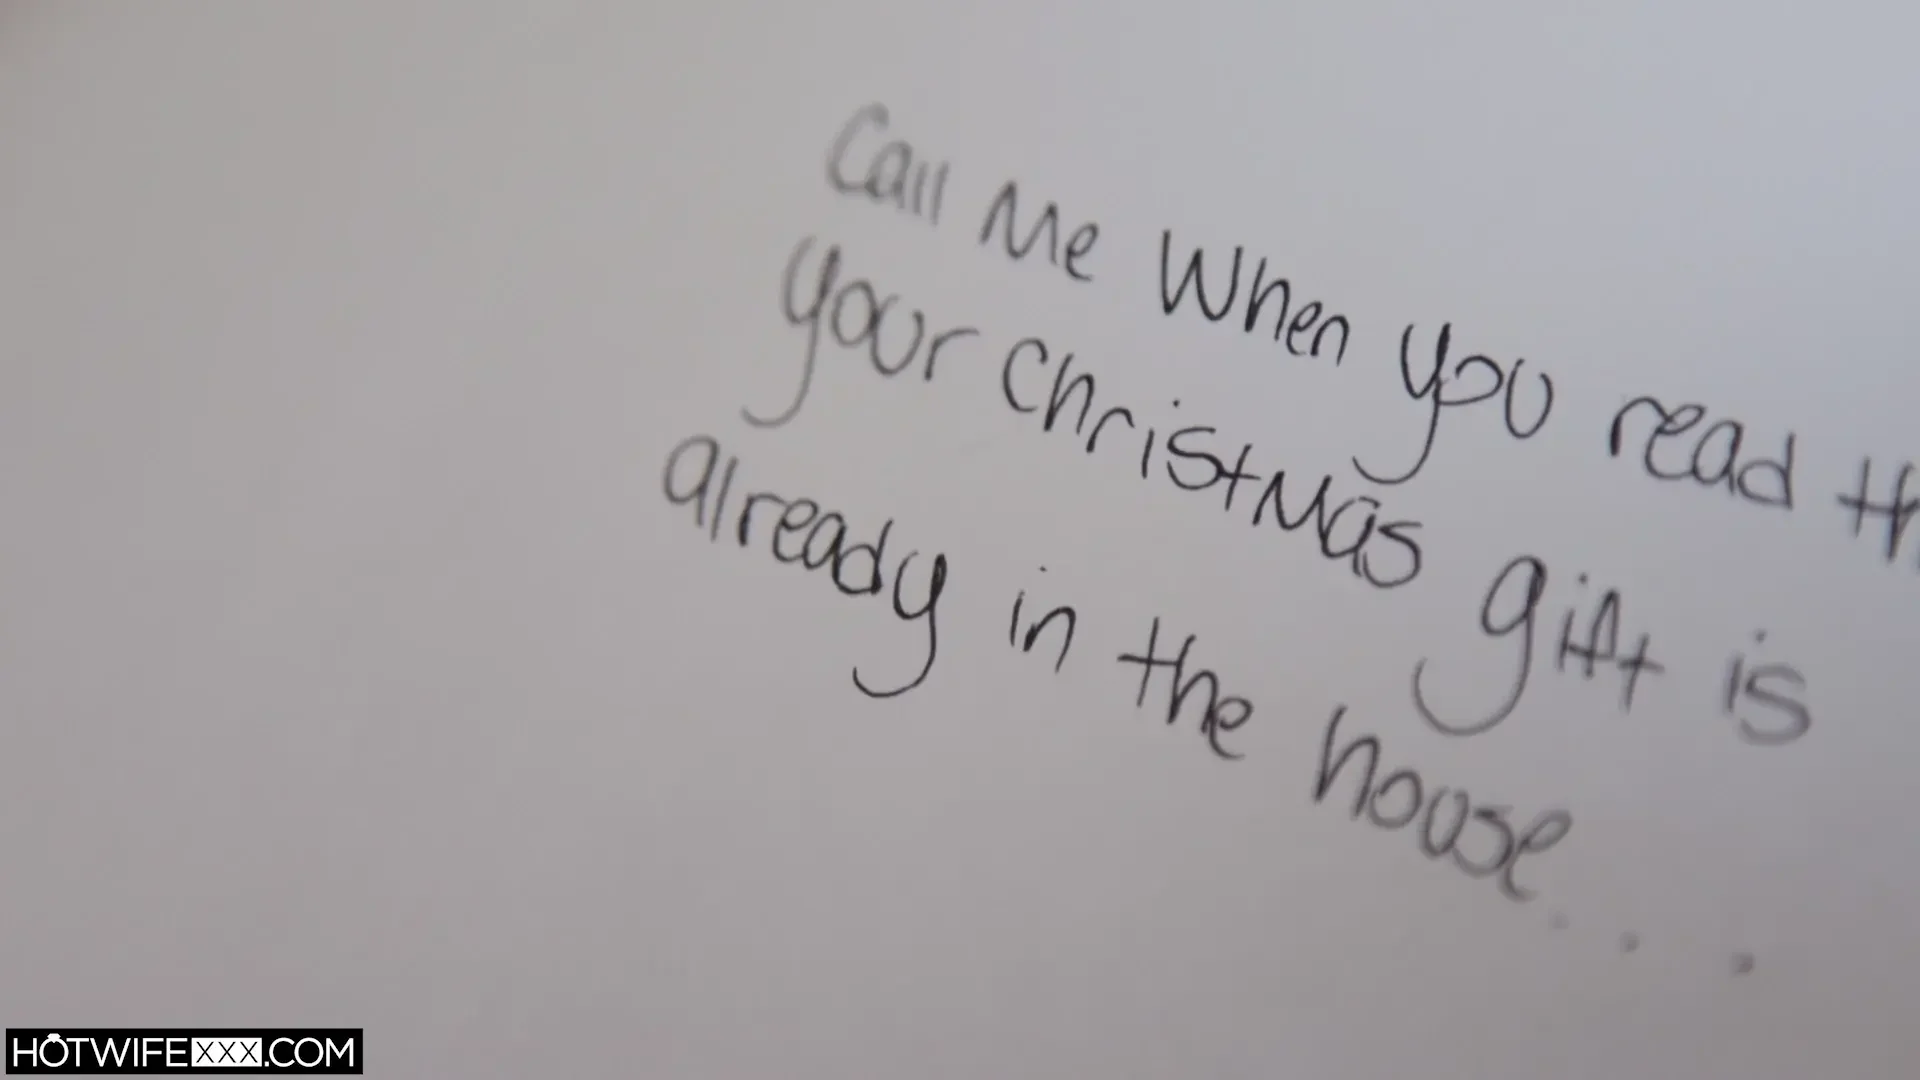 Call Me When you read th
your Christmas gift is
already in the house...
HOTWIFEXXX.COM